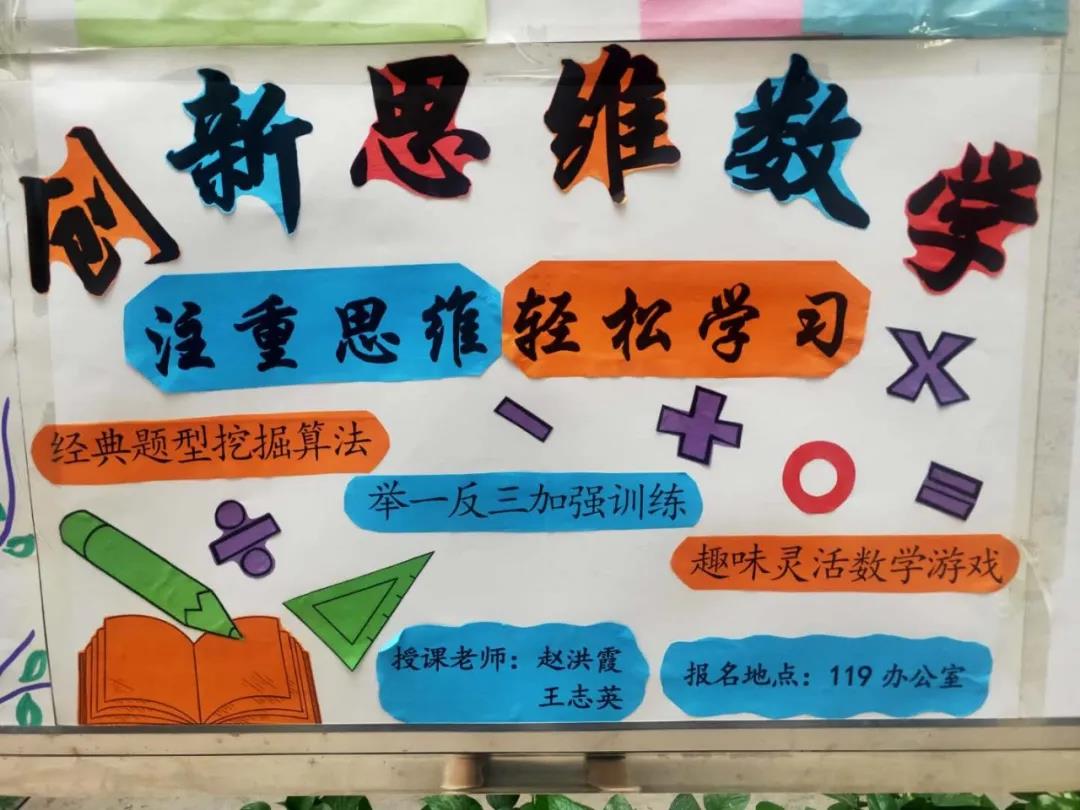 创新思维数学
注重思维 轻松学习
经典题型挖掘算法
举一反三加强训练
趣味灵活数学游戏
授课老师：赵洪霞
王志英
报名地点：119 办公室